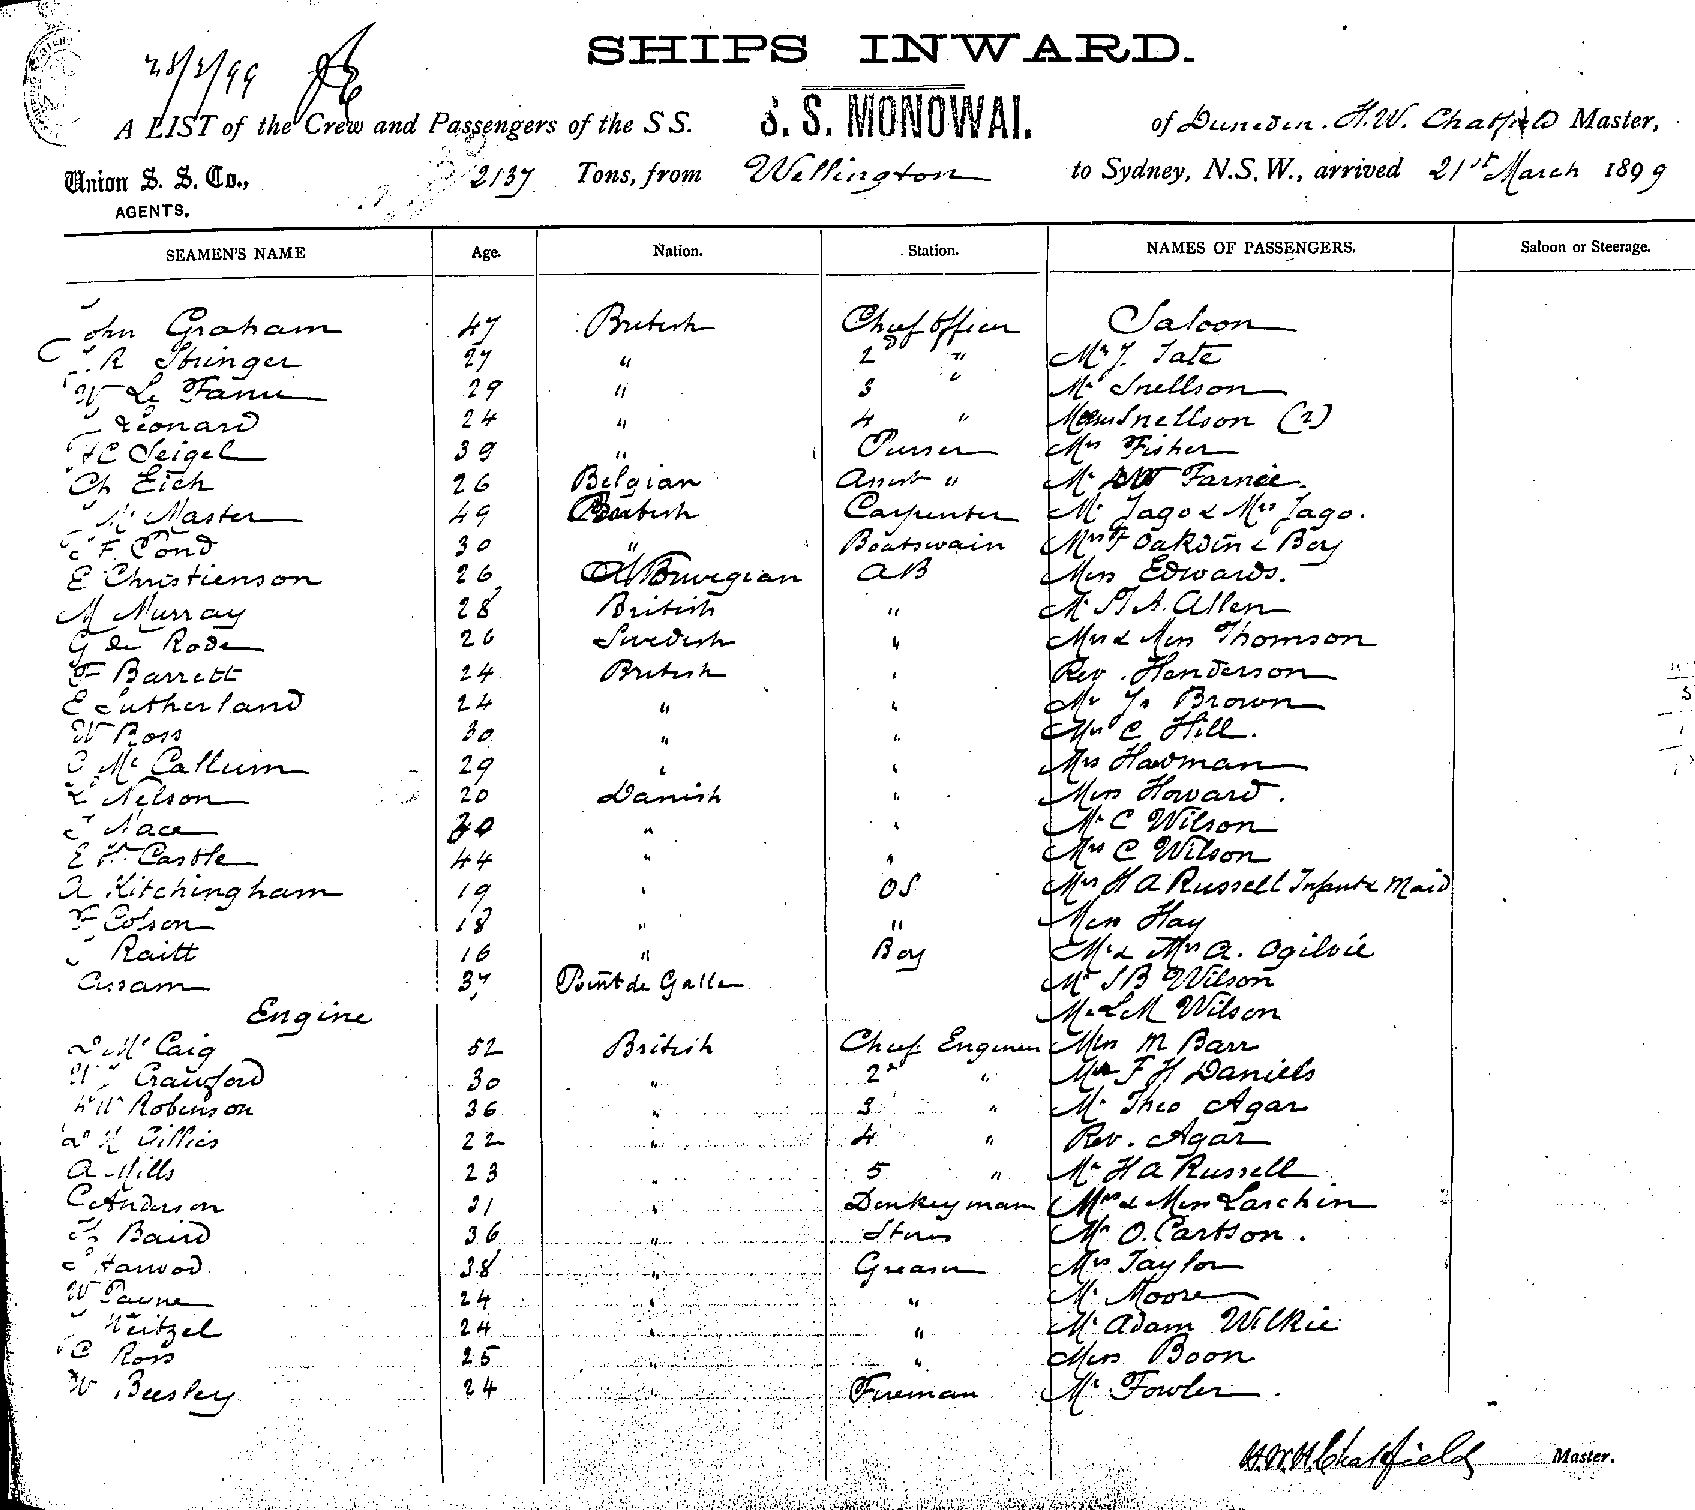 SHIPS INWARD.
A LIST of the Crew and Passengers of the S S. S. S. MONOWAI. of Dunedin. H.W. Chatfield Master,
Union S. S. Co., 2137 Tons, from Wellington to Sydney, N.S.W., arrived 21st March 1899
AGENTS.
SEAMEN'S NAME Age. Nation. Station. NAMES OF PASSENGERS. Saloon or Steerage.
John Graham 47 British Chief Officer Saloon
R Stringer 27 " 2 " Mr J. Tate
W Le Fanu 29 " 3 " Mr Snellson
Leonard 24 " 4 " Snellson (2)
HC Seigel 39 " Purser Mrs Fisher
Ch Eich 26 Belgian Assist " Mr Farnie.
Mc Master 49 British Carpenter Mr Jago & Mrs Jago.
F. Pond 30 " Boatswain Mrs F Oakden & Boy
E Christienson 26 Norwegian AB Miss Edwards.
M Murray 28 British " Mr A. Allen
G de Rode 26 Swedish " Mrs & Miss Thomson
F Barrett 24 British " Rev. Henderson
E Sutherland 24 " " Mr Brown
W Ross 30 " " Mrs C Hill.
Mc Callum 29 " " Mrs Hawman
L Nelson 20 Danish " Miss Howard.
Nace " " Mr C Wilson
E H Castle 44 " " Mrs C Wilson
A Kitchingham 19 " OS Mrs H A Russell Infant & Maid
F Colson 18 " " Miss Hay
J Raitt 16 " Boy Mr & Mrs A. Ogilvie
Assam 37 Point de Galle Mr J B Wilson
Engine Mr L M Wilson
D Mc Caig 52 British Chief Engineer Miss M Barr
W J Crawford 30 " 2nd " F H Daniels
W Robinson 36 " 3 " Mr Theo Agar
D M Gillies 22 " 4 " Rev. Agar
A Mills 23 " 5 " Mr H A Russell
C Anderson 31 " Donkeyman Mrs & Miss Larchin
Baird 36 " Stores Mr O. Cartson.
Harwood 38 " Greaser Mrs Taylor
W Payne 24 " " Mr Moore
J Weitzel 24 " " Mr Adam Wilkie
C Ross 25 " " Miss Boon
W Beesley 24 Fireman Mr Fowler.
H.W.H.Chatfield Master.